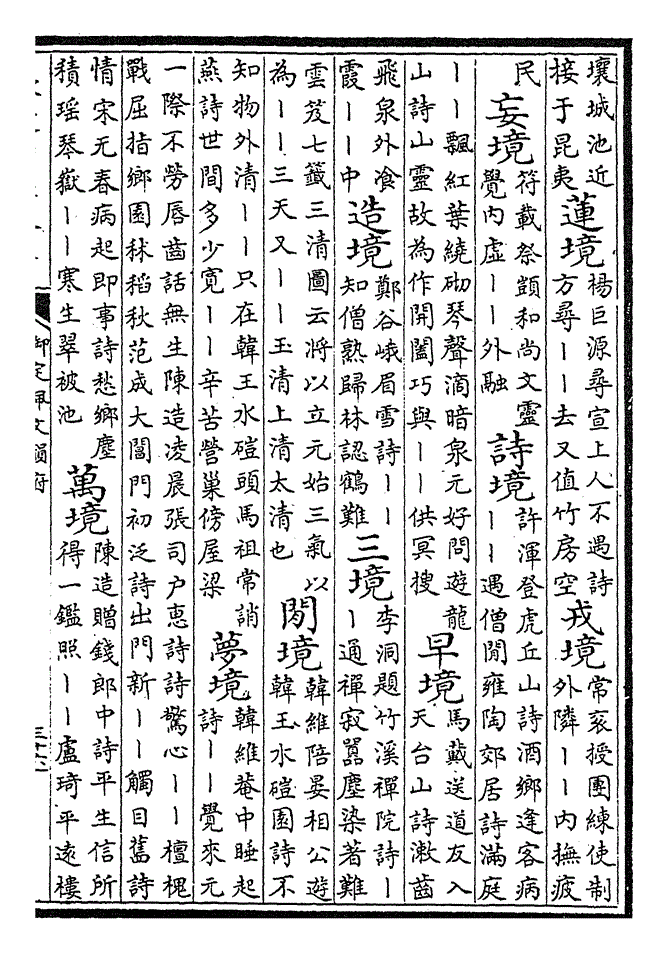 壤城池近
接于昆夷
蓮境
楊巨源尋宣上人不遇詩
方尋丨丨去又值竹房空
戎境
常袞授團練使制
外隣丨丨内撫疲
民
妄境
符載祭顗和尚文靈
覺内虛丨丨外融
詩境
許渾登虎丘山詩酒鄉逢客病
丨丨遇僧閒雍陶郊居詩滿庭
丨丨飄紅葉繞砌琴聲滴暗泉元好問遊龍
山詩山靈故為作開闔巧與丨丨供冥搜
早境
馬戴送道友入
天台山詩漱齒
飛泉外飡
霞丨丨中
造境
鄭谷峨眉雪詩丨丨
知僧熟歸林認鶴難
三境
李洞題竹溪禪院詩丨
丨通禪寂囂塵染著難
雲笈七籤三清圖云將以立元始三氣以
為丨丨三天又丨丨玉清上清太清也
閒境
韓維陪晏相公遊
韓王水磑園詩不
知物外清丨丨只在韓王水磑頭馬祖常誚
燕詩世間多少寛丨丨辛苦營巢傍屋梁
夢境
韓維菴中睡起
詩丨丨覺來元
一際不勞唇齒話無生陳造凌晨張司户惠詩詩驚心丨丨檀槐
戰屈指鄉園秫稻秋范成大閶門初泛詩出門新丨丨觸目舊詩
情宋无春病起即事詩愁鄉塵
積瑶琴嶽丨丨寒生翠被池
萬境
陳造贈錢郎中詩平生信所
得一鑑照丨丨盧琦平逺樓
御定佩文韻府